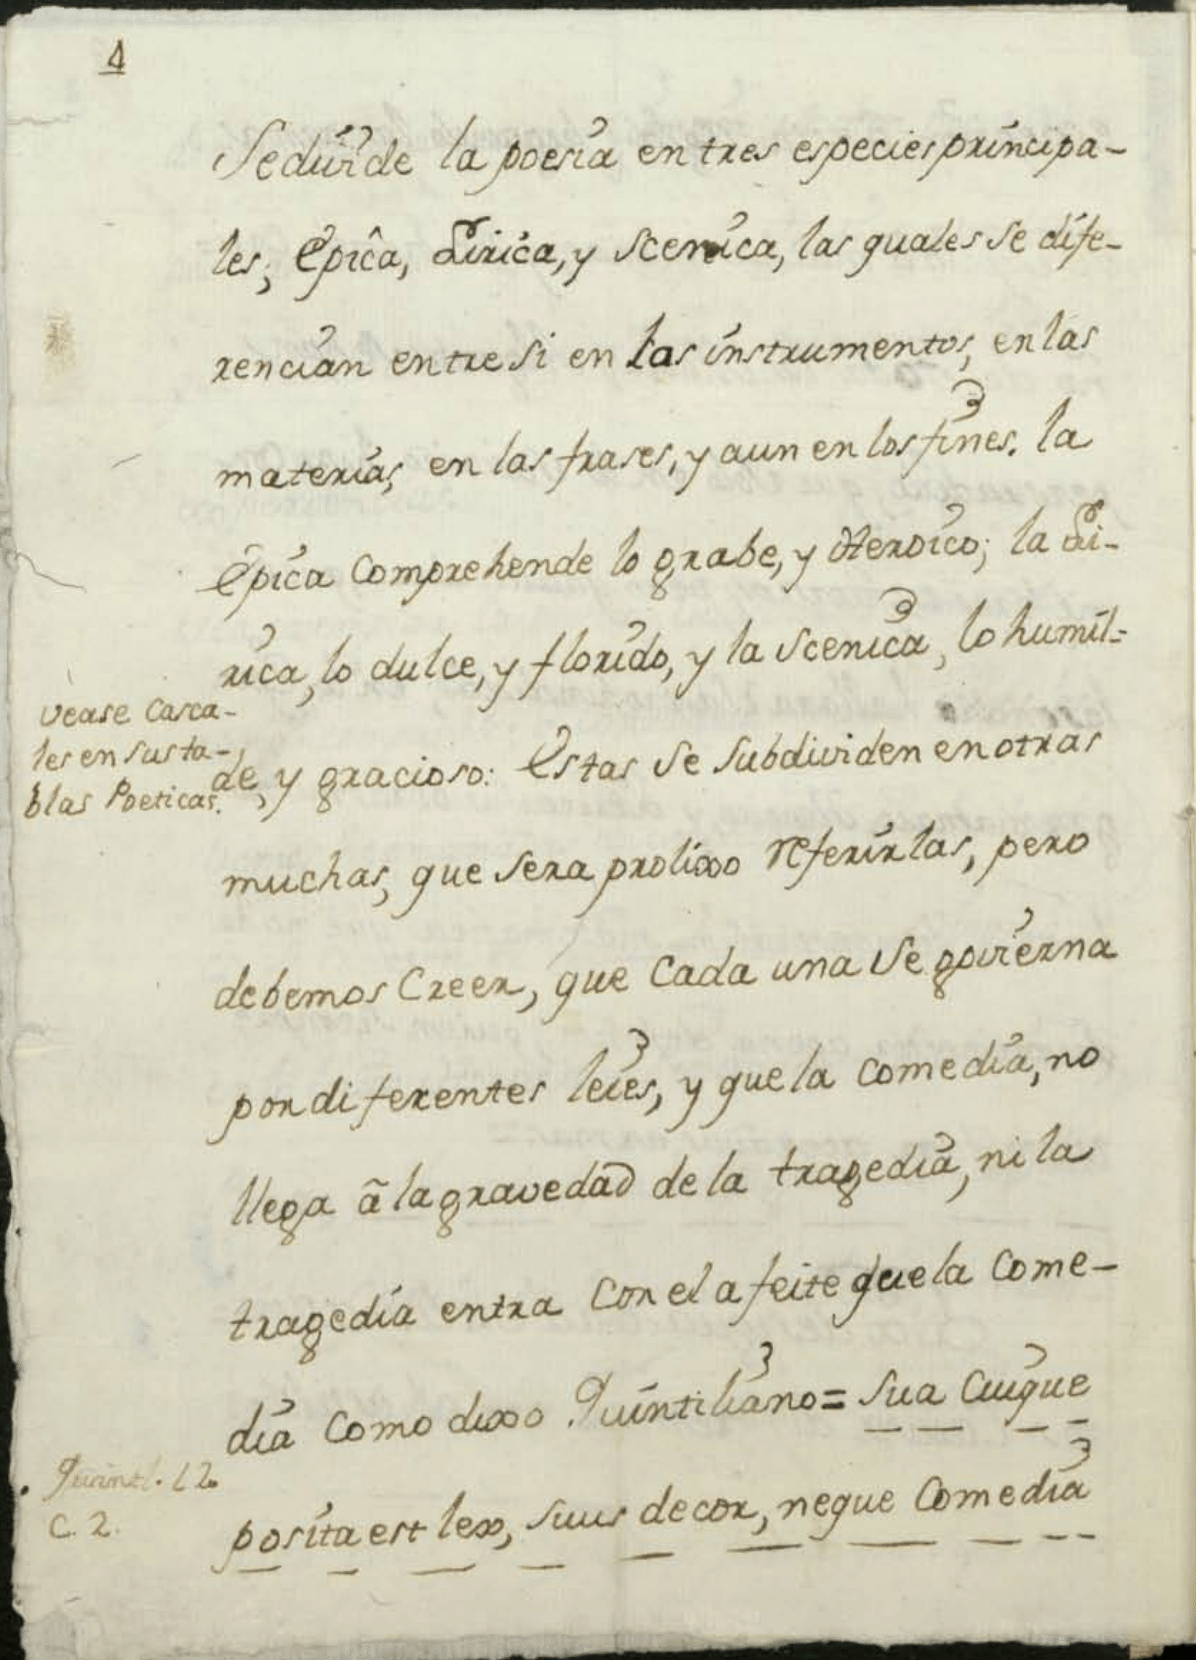 4
Sediuide la poesia en tres especies principa-
les; Epica, Lirica, y Scenica, las quales se dife-
rencian entre si en las instrumentos, en las
materias, en las frases, y aun en los fines. la
Epica Comprehende lo grabe, y Heroico; la Li-
rica, lo dulce, y florido, y la Scenica, lo humil=
vease Casca-
les en sus ta-
blas Poeticas.
de, y gracioso: Estas se subdividen en otras
muchas, que sera prolixo referirlas, pero
debemos Creer, que Cada una se govierna
por diferentes leies, y que la Comedia, no
llega â la gravedad de la tragedia, ni la
tragedia entra Con el afeite que la Come-
dia Como dixo Quintiliano= Sua Cuique
Quintil. l 2.
C. 2.
posita est lex, suus decor, neque Comedia